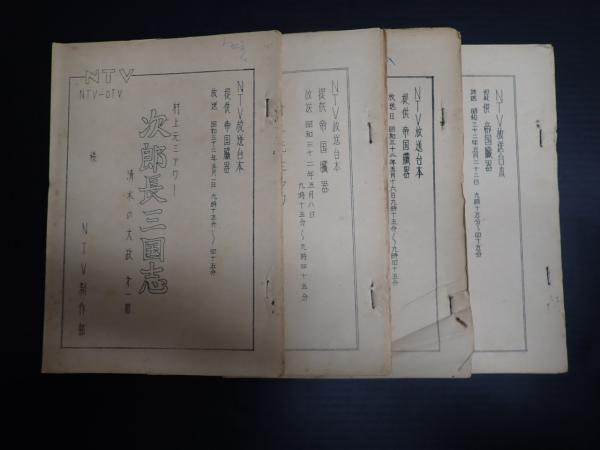 NTV
NTV-OTV
NTV放送台本
提供 帝国臓器
放送 昭和三十二年五月一日 九時十五分~四十五分
村上元三アワー
次郎長三国志
清水の大政 才一回
様
NTV制作部
NTV放送台本
提供 帝国臓器
放送 昭和三十二年五月八日
九時十五分~九時四十五分
NTV放送台本
提供 帝国臓器
放送日 昭和三十二年五月十六日九時十五分~九時四十五
NTV放送台本
提供 帝国臓器
放送 昭和三十二年五月二十二日 九時十五分~四十五分